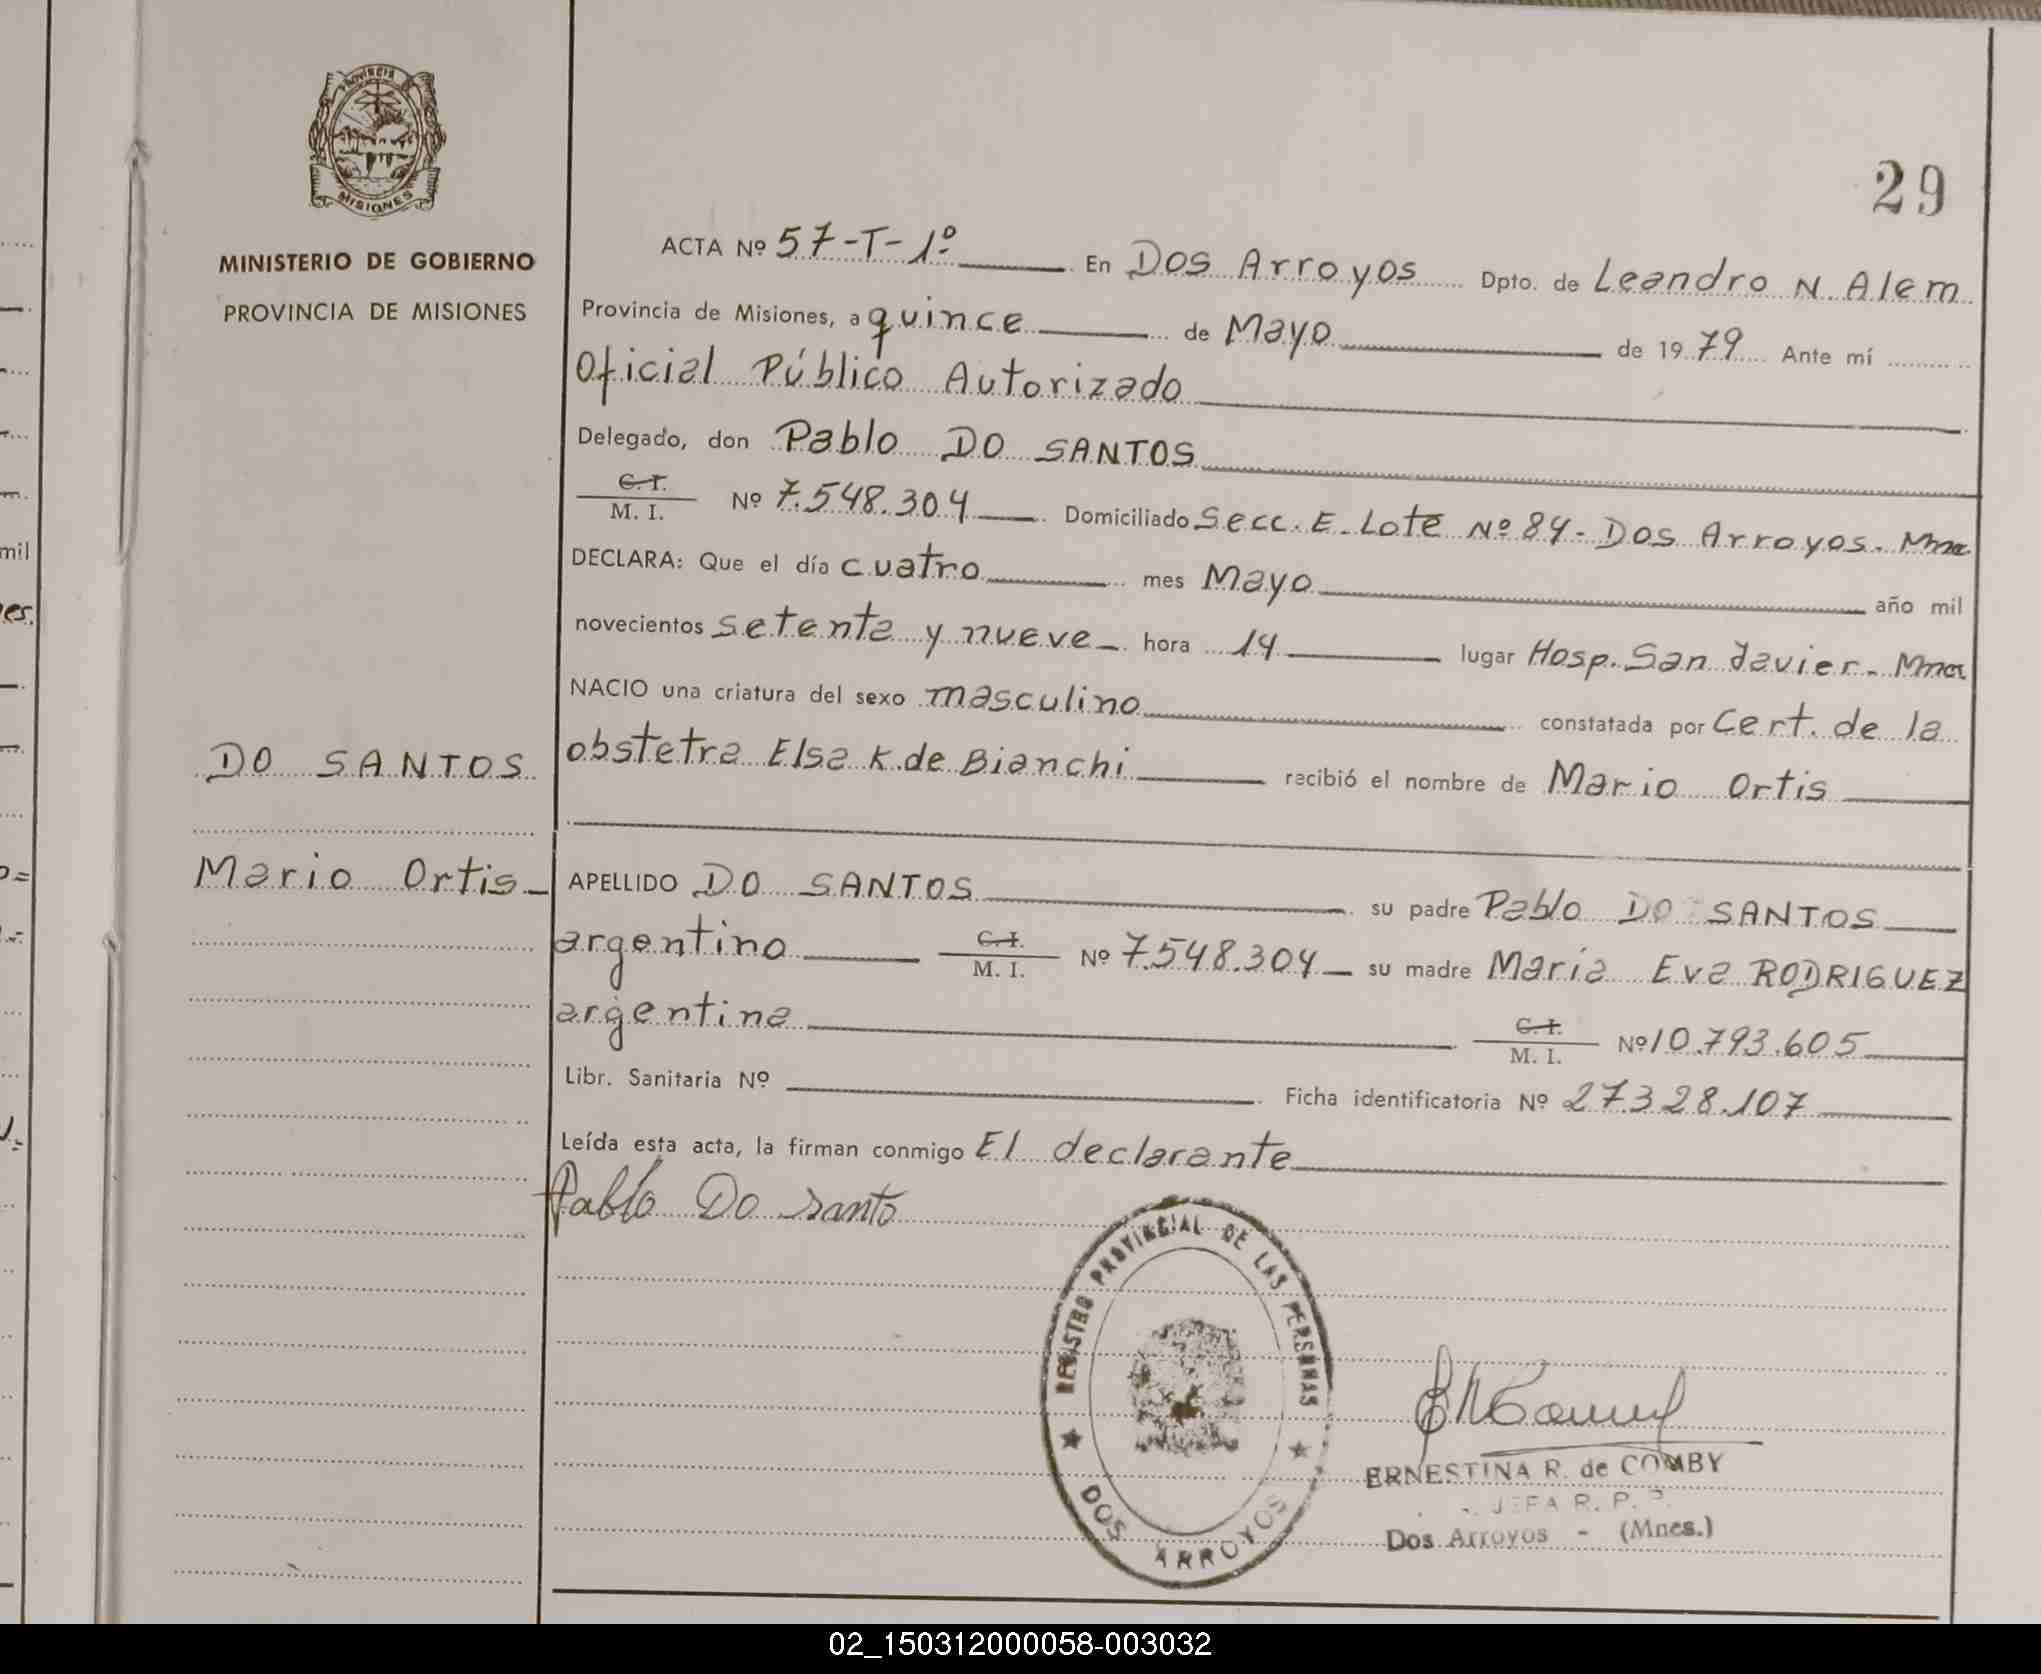 PROVINCIA
MISIONES
MINISTERIO DE GOBIERNO
PROVINCIA DE MISIONES
29
ACTA Nº 57-T-1º En Dos Arroyos Dpto. de Leandro N. Alem
Provincia de Misiones, a quince de Mayo de 1979 Ante mí
Oficial Público Autorizado
Delegado, don Pablo DO SANTOS
C. I.
M. I. Nº 7.548.304 Domiciliado Secc. E. Lote Nº 84- Dos Arroyos.
DECLARA: Que el día cuatro mes Mayo año mil
novecientos setenta y nueve hora 14 lugar Hosp. San Javier.
NACIO una criatura del sexo masculino constatada por Cert. de la
obstetra Elsa K. de Bianchi recibió el nombre de Mario Ortis
DO SANTOS
Mario Ortis
APELLIDO DO SANTOS su padre Pablo DO SANTOS
argentino C. I. M. I. Nº 7.548.304 su madre Maria Eva RODRIGUEZ
argentina C. I. M. I. Nº 10.793.605
Libr. Sanitaria Nº Ficha identificatoria Nº 27.328.107
Leída esta acta, la firman conmigo El declarante
Pablo Do Santo
REGISTRO PROVINCIAL DE LAS PERSONAS
DOS ARROYOS
ERNESTINA R. de COMBY
JEFA R. P. P.
Dos Arroyos - (Mnes.)
mil
es.
02_150312000058-003032